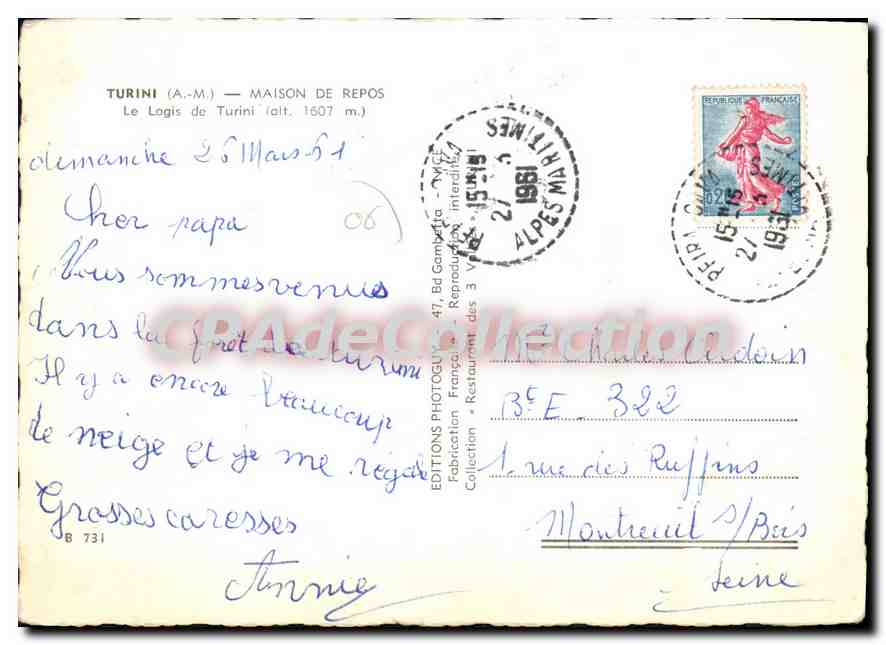 TURINI (A.-M.) — MAISON DE REPOS
Le Logis de Turini (alt. 1607 m.)
dimanche 26 Mars 61
Cher papa
06
Vous sommes venues
dans la forêt de turini
Il y a encore beaucoup
de neige et je me régale
Grosses caresses
B 731
Annie
EDITIONS PHOTOGUY - 47, Bd Gambetta - NICE
Fabrication Française - Reproduction interdite
Collection « Restaurant des 3 V
CPAdeCollection
15H-15
27 3
1961
ALPES MARITIMES
REPUBLIQUE FRANÇAISE
0,20
POSTES
PEIRA CAVA
15H-15
27 3
1961
Mr Charles Oudoin
Bt E. 322
1. rue des Ruffins
Montreuil s/Bois
Seine